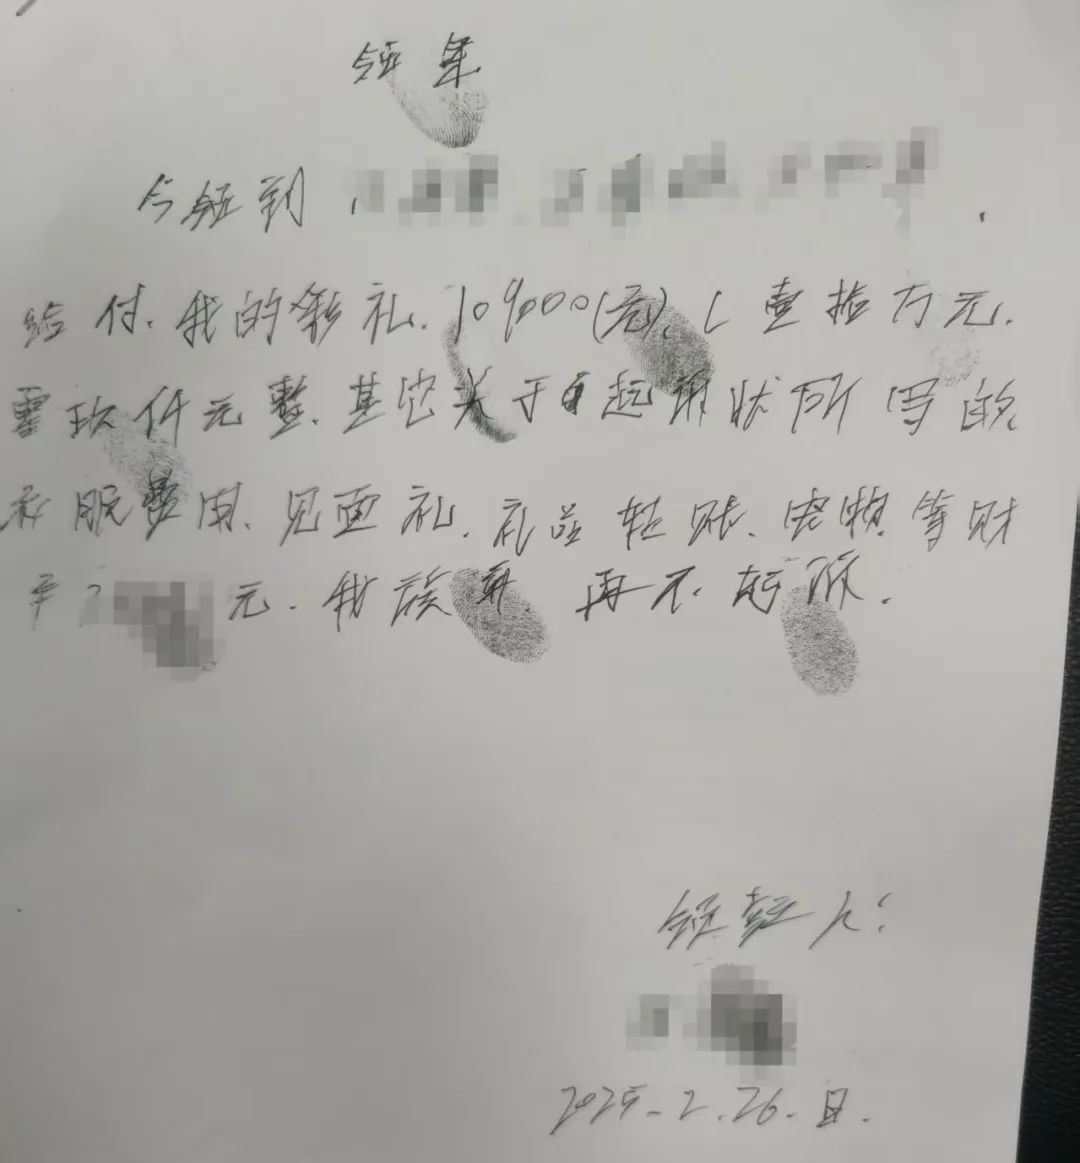 领条
今领到
给付.我的彩礼.109000(元).(壹拾万元.
零玖仟元整.其它关于起诉状所写的
衣服费用.见面礼.礼品转账.宠物等财
产 元.我放弃.再不起诉.
领款人:
2025.2.26.日.